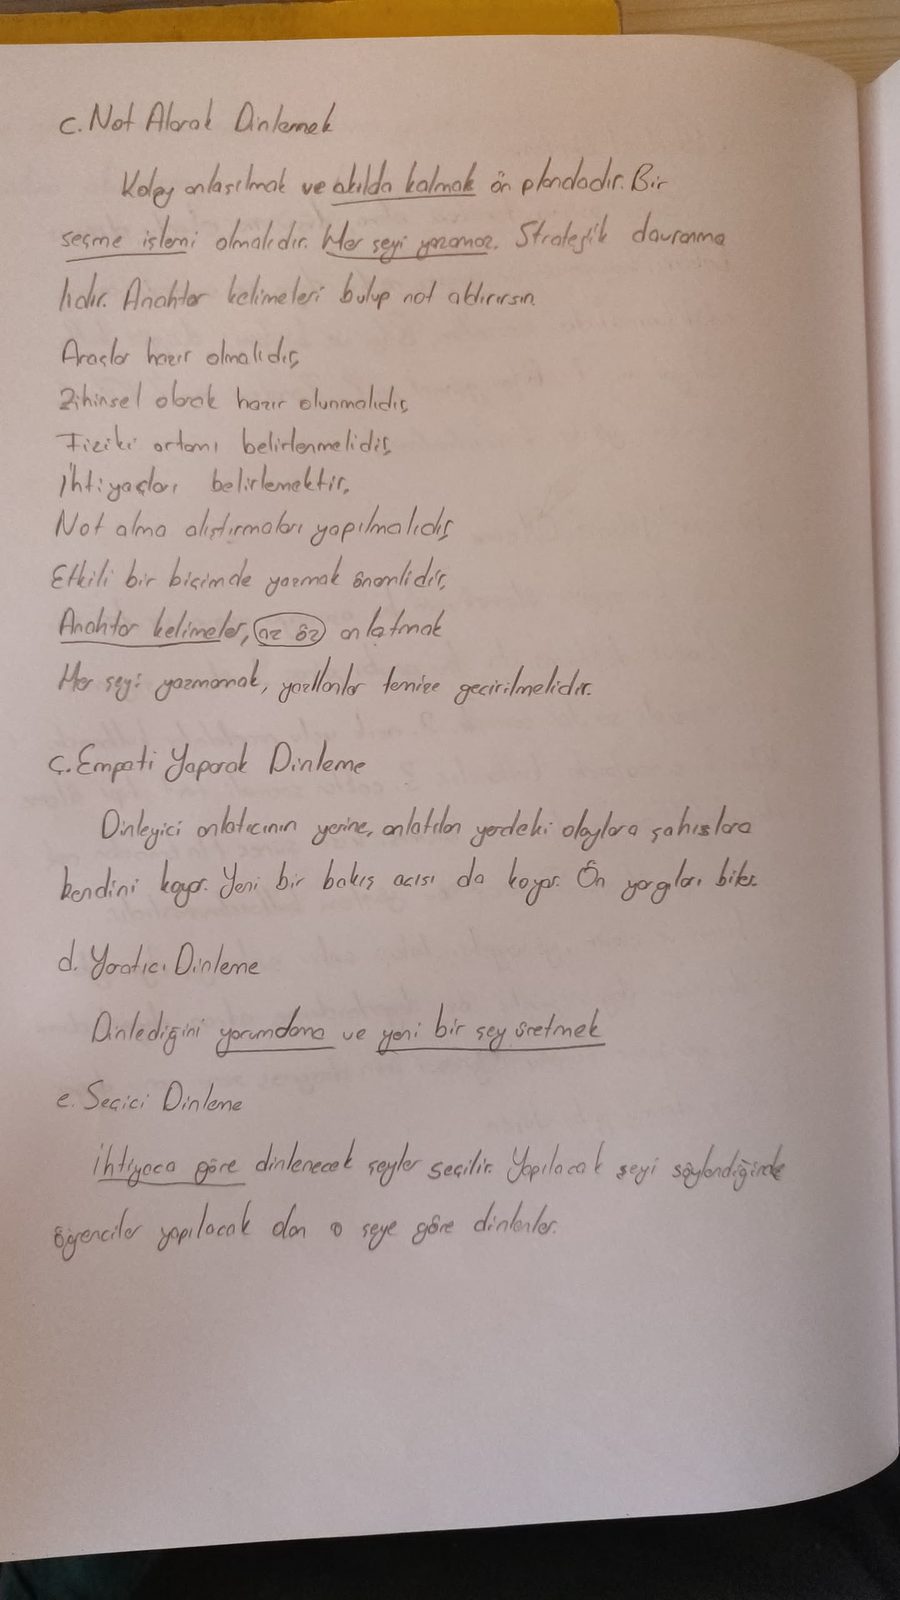 c. Not Alarak Dinlemek
Kolay anlaşılmak ve akılda kalmak ön plandadır. Bir
seçme işlemi olmalıdır. Her şeyi yazamaz. Stratejik davranma
lıdır. Anahtar kelimeleri bulup not aldırırsın.
Araçlar hazır olmalıdır,
Zihinsel olarak hazır olunmalıdır,
Fiziki ortamı belirlenmelidir,
İhtiyaçları belirlemektir,
Not alma alıştırmaları yapılmalıdır,
Etkili bir biçimde yazmak önemlidir,
Anahtar kelimeler, az öz anlatmak
Her şeyi yazmamak, yazılanlar temize geçirilmelidir.
ç. Empati Yaparak Dinleme
Dinleyici anlatıcının yerine, anlatılan yerdeki olaylara şahıslara
kendini koyar. Yeni bir bakış açısı da koyar. Ön yargıları biter.
d. Yaratıcı Dinleme
Dinlediğini yorumlama ve yeni bir şey üretmek
e. Seçici Dinleme
İhtiyaca göre dinlenecek şeyler seçilir. Yapılacak şeyi söylendiğinde
öğrenciler yapılacak olan o şeye göre dinlerler.